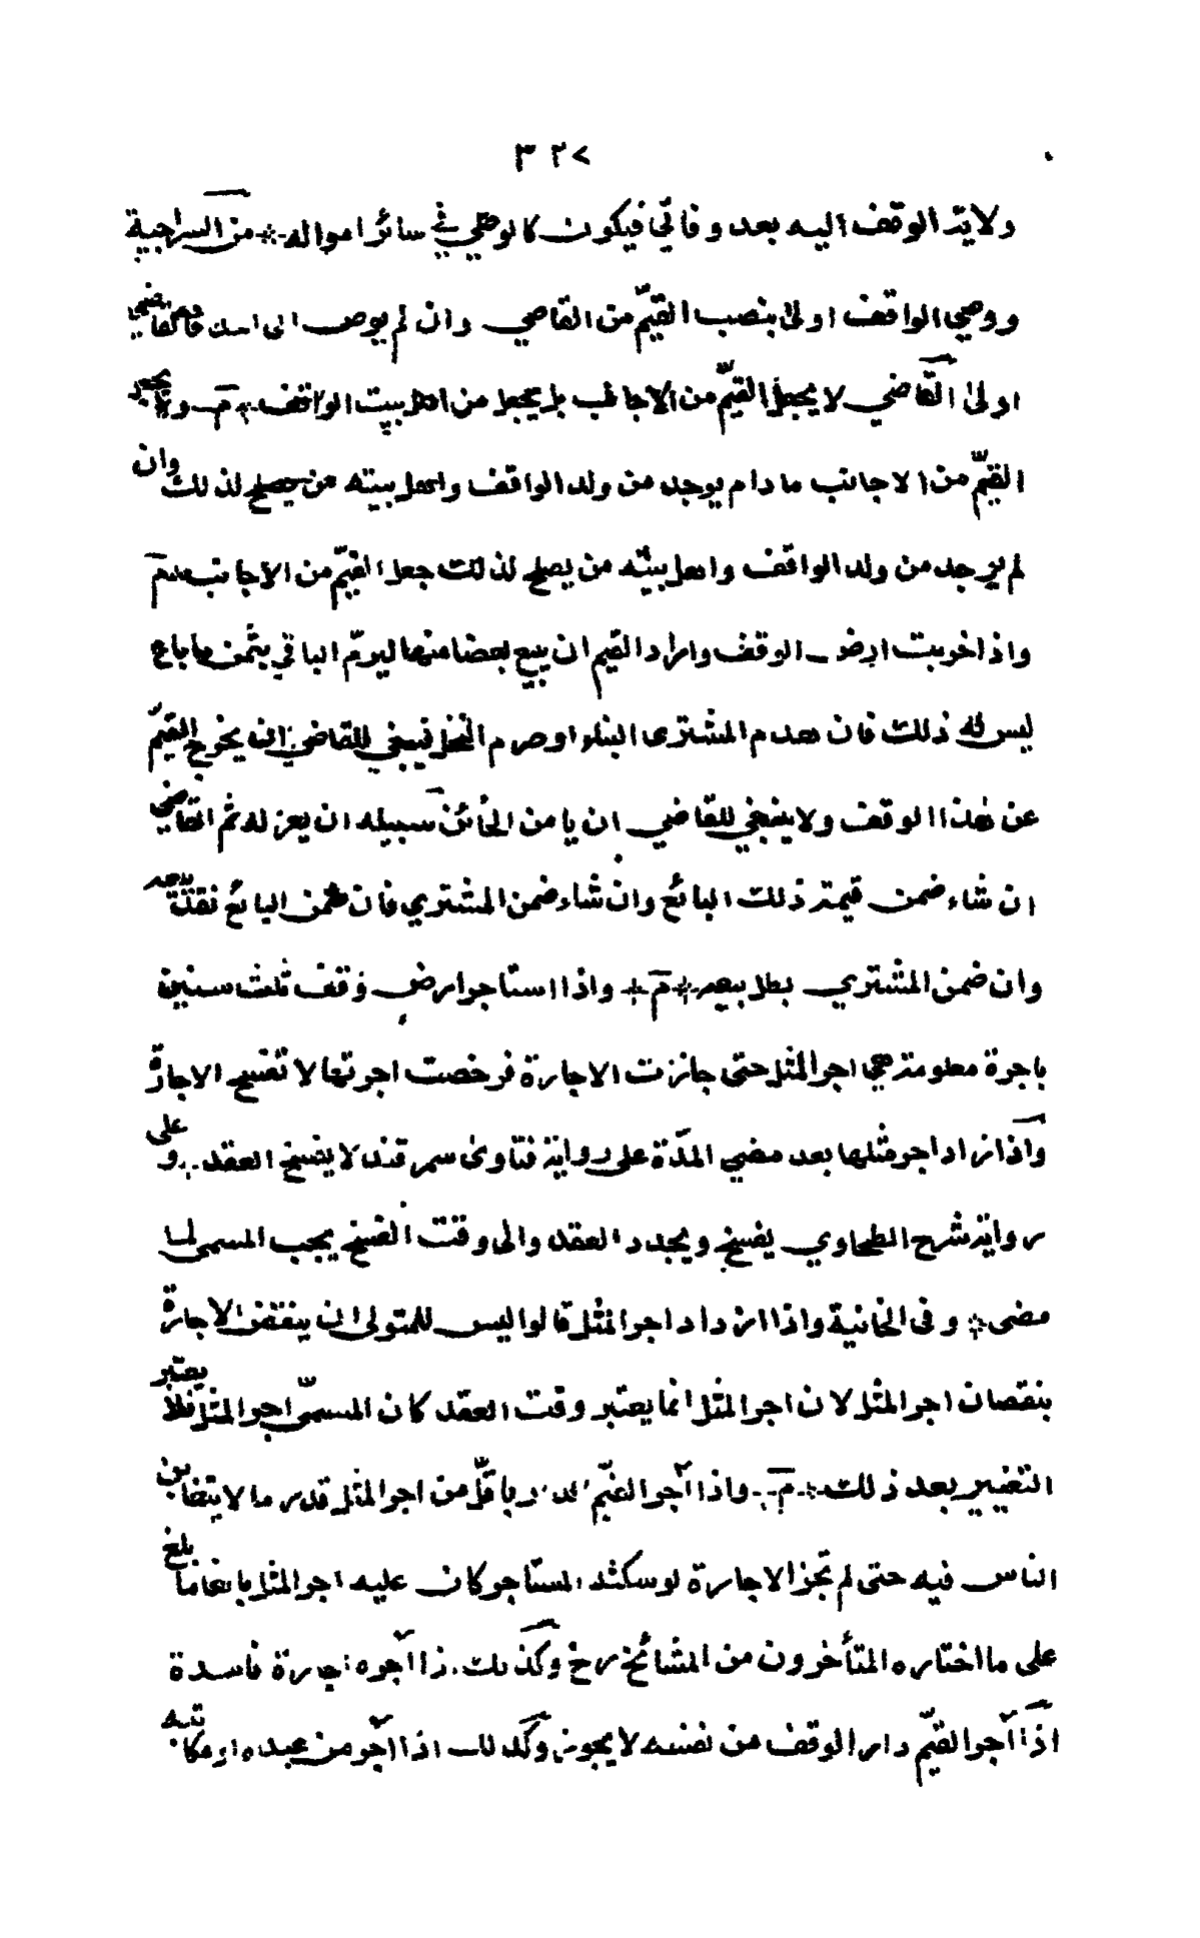 ٣٢٧
ولاية الوقف اليه بعد وفاتي فيكون كالوصي في سائر امواله * من السراجية
ووصي الواقف اولى بنصب القيّم من القاضي وان لم يوص الى احد فالقاضي
اولى القاضي لا يجعل القيّم من الاجانب بل يجعل من اهل بيت الواقف * م ولا يجعل
القيّم من الاجانب ما دام يوجد من ولد الواقف واهل بيته من يصلح لذلك وان
لم يوجد من ولد الواقف واهل بيته من يصلح لذلك جعل القيّم من الاجانب * م
واذا خربت ارض الوقف واراد القيم ان يبيع بعضا منها ليرمّ الباقي بثمن ما باع
ليس له ذلك فان هدم المشترى البناء او صرم النخل فينبغي للقاضي ان يخرج القيّم
عن هذا الوقف ولا ينبغي للقاضي ان يا من الخائن سبيله ان يعزله ثم القاضي
ان شاء ضمن قيمة ذلك البائع وان شاء ضمن المشتري فان ضمن البائع نفذ بيعه
وان ضمن المشتري بطل بيعه * م * واذا استاجر ارض وقف ثلث سنين
باجرة معلومة هي اجر المثل حتى جازت الاجارة فرخصت اجرتها لا تفسخ الاجارة
واذا زاد اجر مثلها بعد مضي المدّة على رواية فتاوى سمرقند لا يفسخ العقد * وعلى
رواية شرح الطحاوي يفسخ ويجدد العقد والى وقت الفسخ يجب المسمى لما
مضى * وفى الخانية واذا ازداد اجر المثل قالوا ليس للمتولى ان ينقض الاجارة
بنقصان اجر المثل لان اجر المثل انما يعتبر وقت العقد كان المسمّى اجر المثل فلا يعتبر
التغيير بعد ذلك * م * واذا آجر القيّم الدار باقلّ من اجر المثل قدر ما لا يتغابن
الناس فيه حتى لم تجز الاجارة لو سكنه المستاجر كان عليه اجر المثل بالغا ما بلغ
على ما اختاره المتأخرون من المشائخ رح وكذلك اذا آجره اجارة فاسدة
اذا آجر القيّم دار الوقف من نفسه لا يجوز وكذلك اذا آجر من عبده او مكاتبه